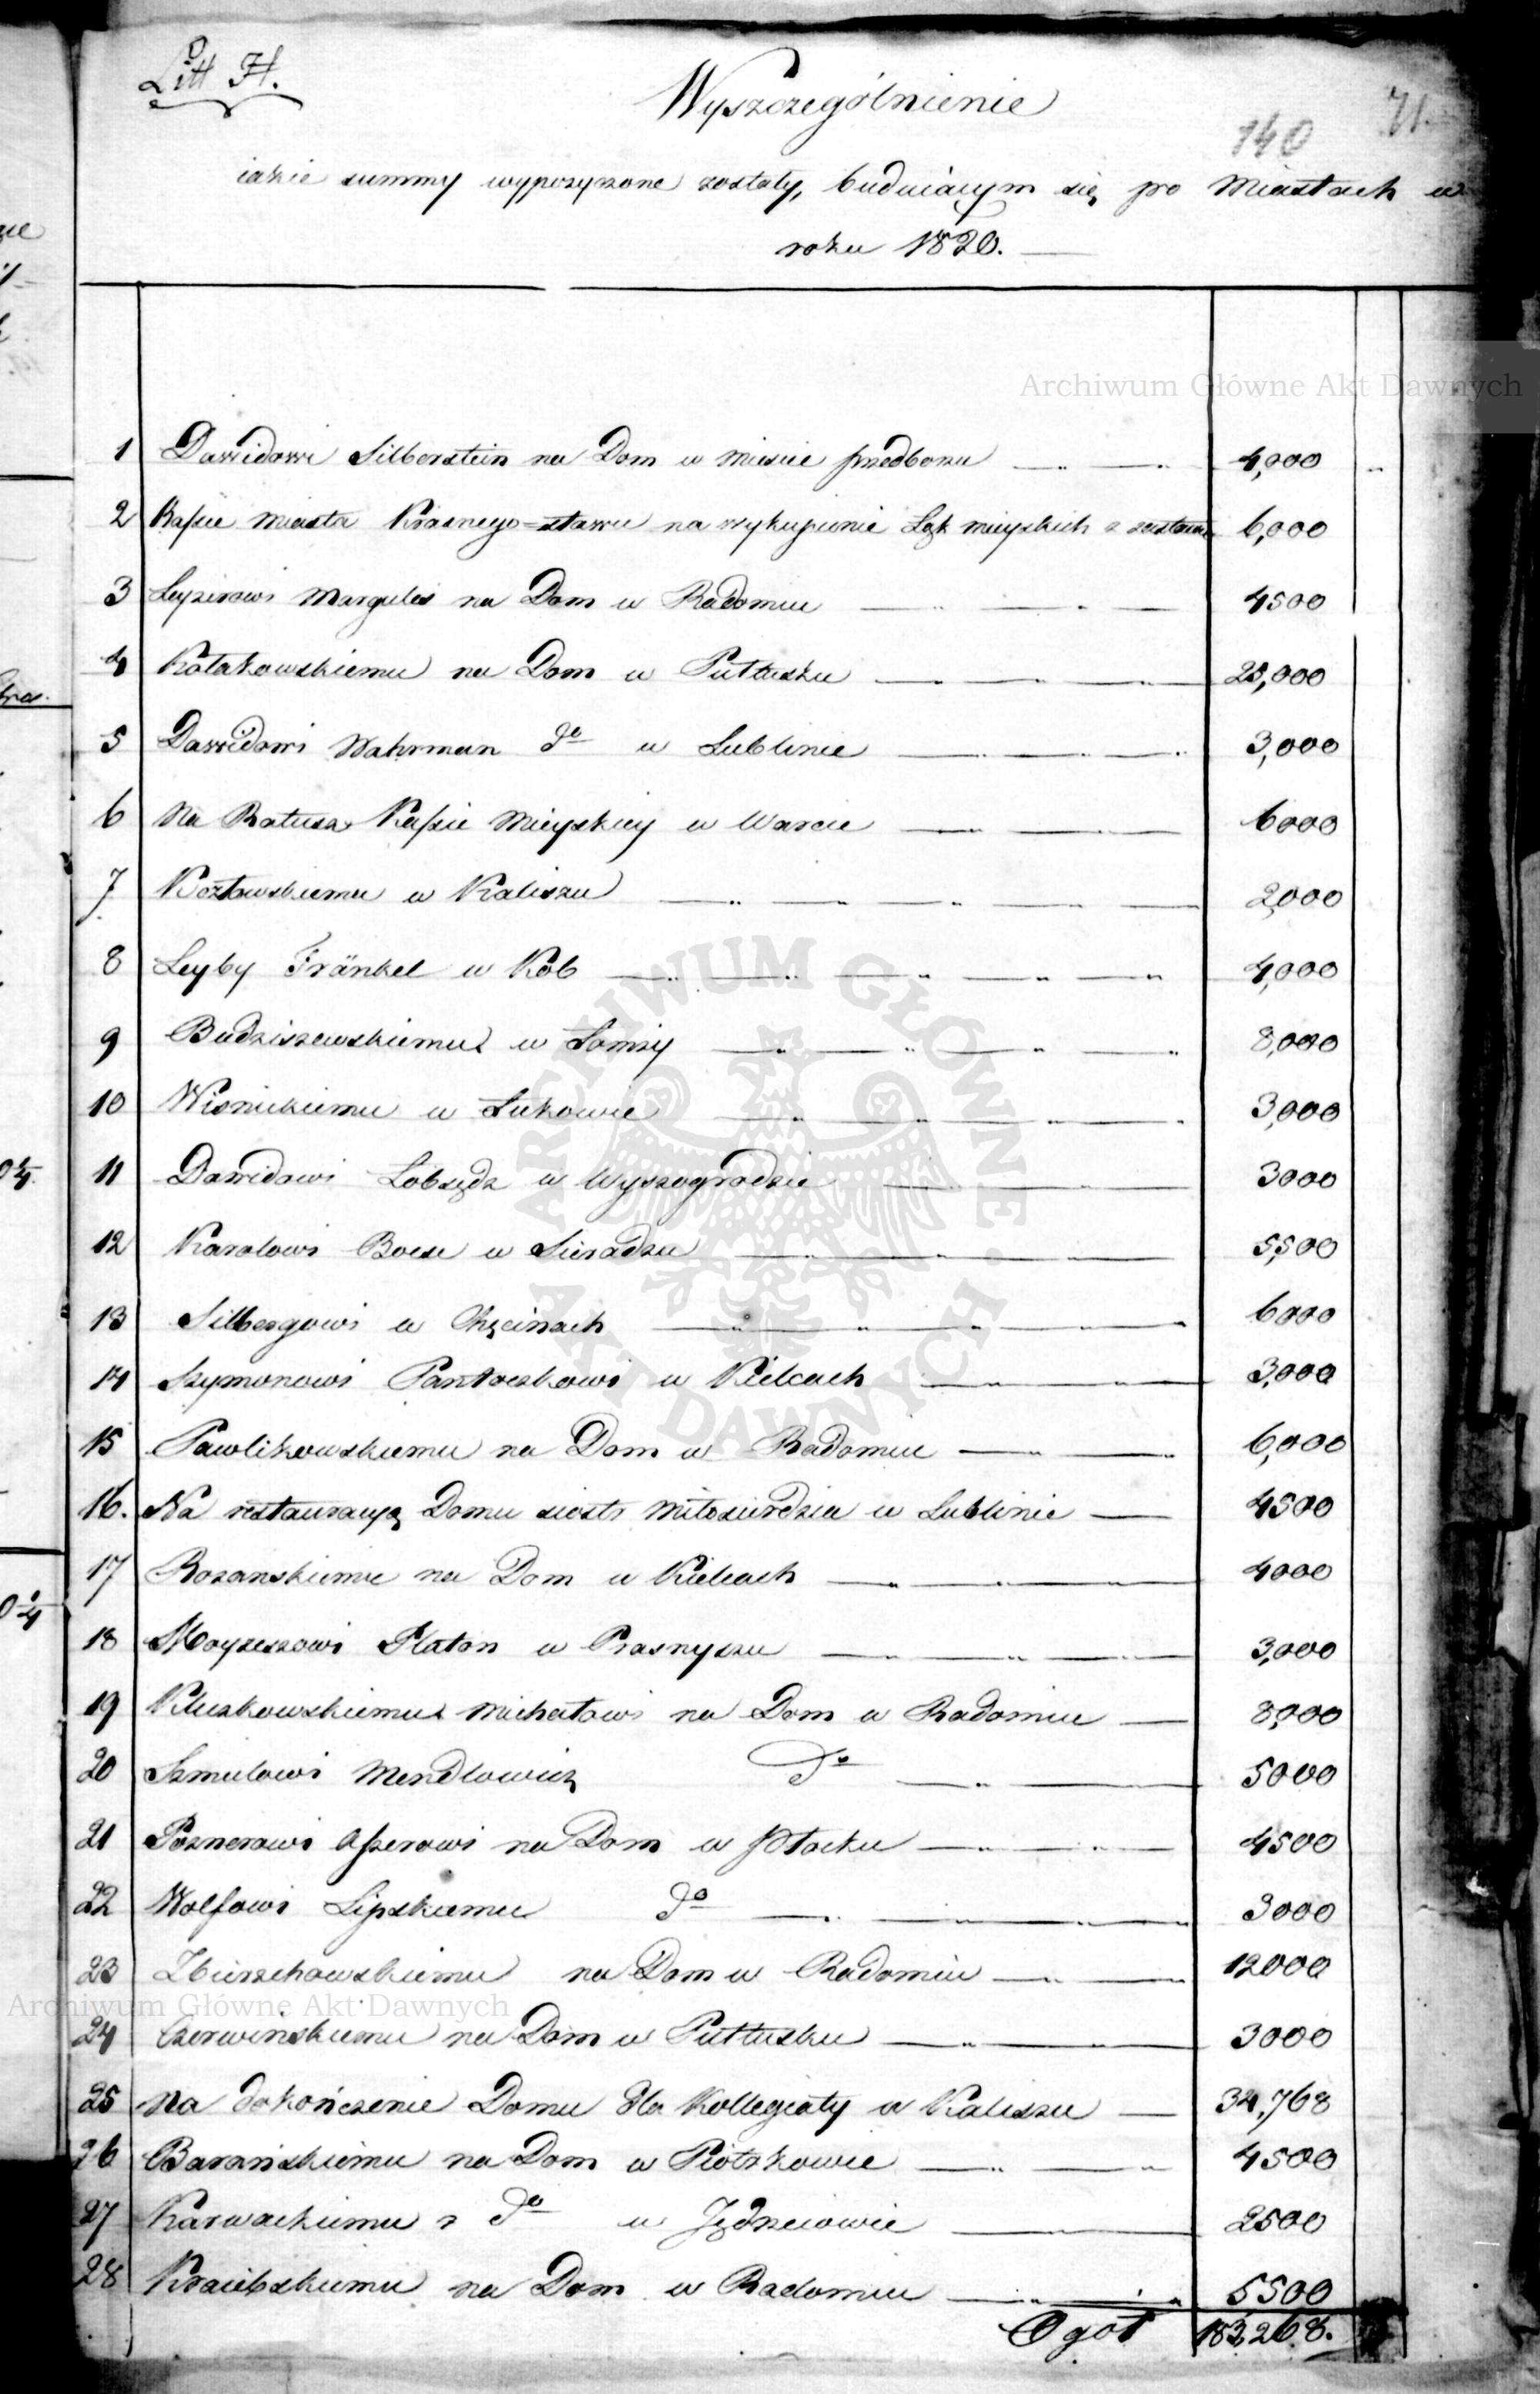 Litt H.
Wyszczególnienie
140
71.
iakie summy wypożyczone zostały, buduiącym się po Miastach w
roku 1820.
Archiwum Główne Akt Dawnych
1 Dawidowi Silberstein na Dom w mieście przedborzu 4,000
2 Kassie Miasta Krasnego=stawu na wykupienie Łąk mieyskich z zastawu 6,000
3 Leyzerowi Margules na Dom w Radomiu 4500
4 Kołakowskiemu na Dom w Pułtusku 25,000
5 Dawidowi Wahrman do w Lublinie 3,000
6 Na Ratusz Kassie Mieyskiey w Warcie 6000
7 Kozłowskiemu w Kaliszu 2,000
8 Leyby Fränkel w Kole 4,000
9 Budziszewskiemu w Łomży 8,000
10 Wisnickiemu w Łukowie 3,000
11 Dawidowi Łobsędz w Wyszogrodzie 3000
12 Karolowi Boese w Sieradzu 5,500
13 Silbergowi w Chęcinach 6000
14 Szymonowi Pantoczkowi w Kielcach 3,000
15 Pawlikowskiemu na Dom w Radomiu 6,000
16. Na restauracyą Domu siostr Miłosierdzia w Lublinie 4500
17 Rozanskiemu na Dom w Kielcach 4000
18 Moyżeszowi Platon w Prasnyszu 3,000
19 Kluszkowskiemu Michałowi na Dom w Radomiu 8,000
20 Szmulowi Mendlowicz do 5000
21 Poznerowi Asserowi na Dom w Płocku 4500
22 Wolfowi Lipskiemu do 3000
23 Zbierzchowskiemu na Dom w Radomiu 12000
Archiwum Główne Akt Dawnych
24 Czerwińskiemu na Dom w Pułtusku 3000
25 Na dokończenie Domu dla Kollegiaty w Kaliszu 34,768
26 Barańskiemu na Dom w Piotrkowie 4500
27 Karwackiemu do w Jędrzeiowie 2500
28 na Dom w Radomiu 5500
Ogół 183,268.
ARCHIWUM GŁÓWNE AKT DAWNYCH